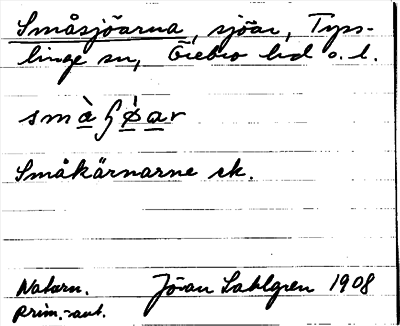 Småsjöarna, sjöar, Tyss-
linge sn, Örebro hd o. l.
smàʃø̀ar
Småkärnarne ek.
Naturn. Jöran Sahlgren 1908
prim.-aut.